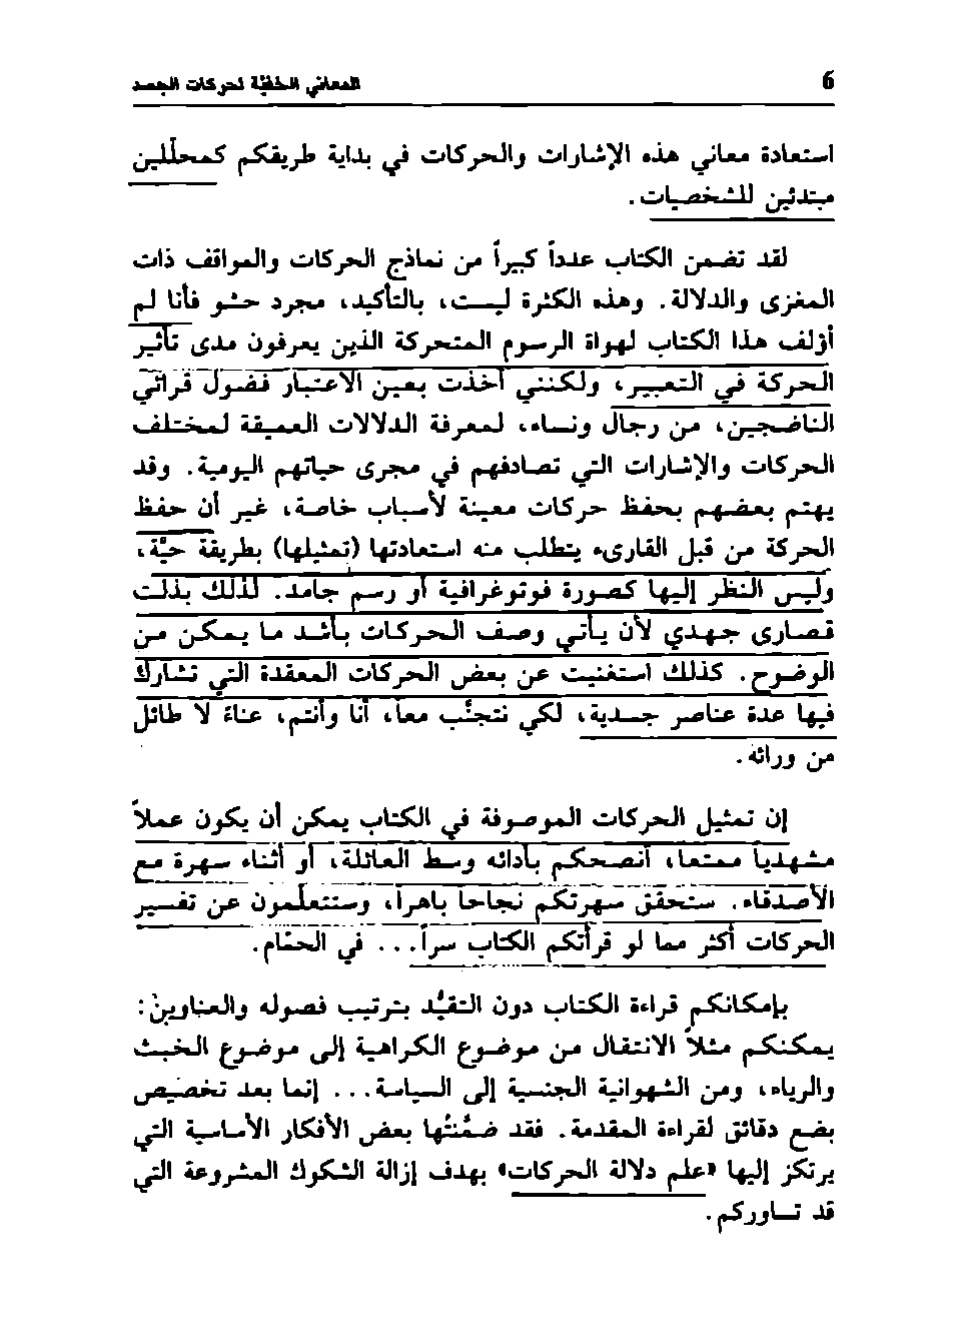 6
المعاني الخفيّة لحركات الجسد
استعادة معاني هذه الإشارات والحركات في بداية طريقكم كمحلّلين
مبتدئين للشخصيات.
لقد تضمن الكتاب عدداً كبيراً من نماذج الحركات والمواقف ذات
المغزى والدلالة. وهذه الكثرة ليست، بالتأكيد، مجرد حشو فأنا لم
أؤلف هذا الكتاب لهواة الرسوم المتحركة الذين يعرفون مدى تأثير
الحركة في التعبير، ولكنني أخذت بعين الاعتبار فضول قرائي
الناضجين، من رجال ونساء، لمعرفة الدلالات العميقة لمختلف
الحركات والإشارات التي تصادفهم في مجرى حياتهم اليومية. وقد
يهتم بعضهم بحفظ حركات معينة لأسباب خاصة، غير أن حفظ
الحركة من قبل القارىء يتطلب منه استعادتها (تمثيلها) بطريقة حيّة،
وليس النظر إليها كصورة فوتوغرافية أو رسم جامد. لذلك بذلت
قصارى جهدي لأن يأتي وصف الحركات بأشد ما يمكن من
الوضوح. كذلك استغنيت عن بعض الحركات المعقدة التي تشارك
فيها عدة عناصر جسدية، لكي نتجنّب معاً، أنا وأنتم، عناءً لا طائل
من ورائه.
إن تمثيل الحركات الموصوفة في الكتاب يمكن أن يكون عملاً
مشهدياً ممتعاً، أنصحكم بأدائه وسط العائلة، أو أثناء سهرة مع
الأصدقاء. ستحقق سهرتكم نجاحاً باهراً، وستتعلّمون عن تفسير
الحركات أكثر مما لو قرأتكم الكتاب سراً... في الحمّام.
بإمكانكم قراءة الكتاب دون التقيُّد بترتيب فصوله والعناوين:
يمكنكم مثلاً الانتقال من موضوع الكراهية إلى موضوع الخبث
والرياء، ومن الشهوانية الجنسية إلى السياسة... إنما بعد تخصيص
بضع دقائق لقراءة المقدمة. فقد ضمَّنتُها بعض الأفكار الأساسية التي
يرتكز إليها «علم دلالة الحركات» بهدف إزالة الشكوك المشروعة التي
قد تساوركم.